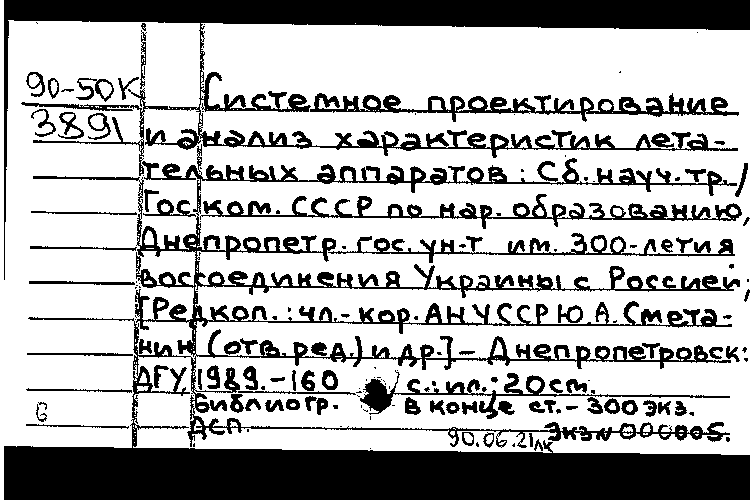 90-50К
3891
Системное проектирование
и анализ характеристик лета-
тельных аппаратов: Сб. науч. тр./
Гос. ком. СССР по нар. образованию,
Днепропетр. гос. ун-т им. 300-летия
воссоединения Украины с Россией;
[Редкол.: чл.-кор. АН УССР Ю.А. Смета-
нин (отв. ред.) и др.] - Днепропетровск:
ДГУ, 1989. - 160 с.: ил.; 20 см.
Библиогр. в конце ст. - 300 экз.
ДСП.
90.06.21 лк
Экз N 000005.